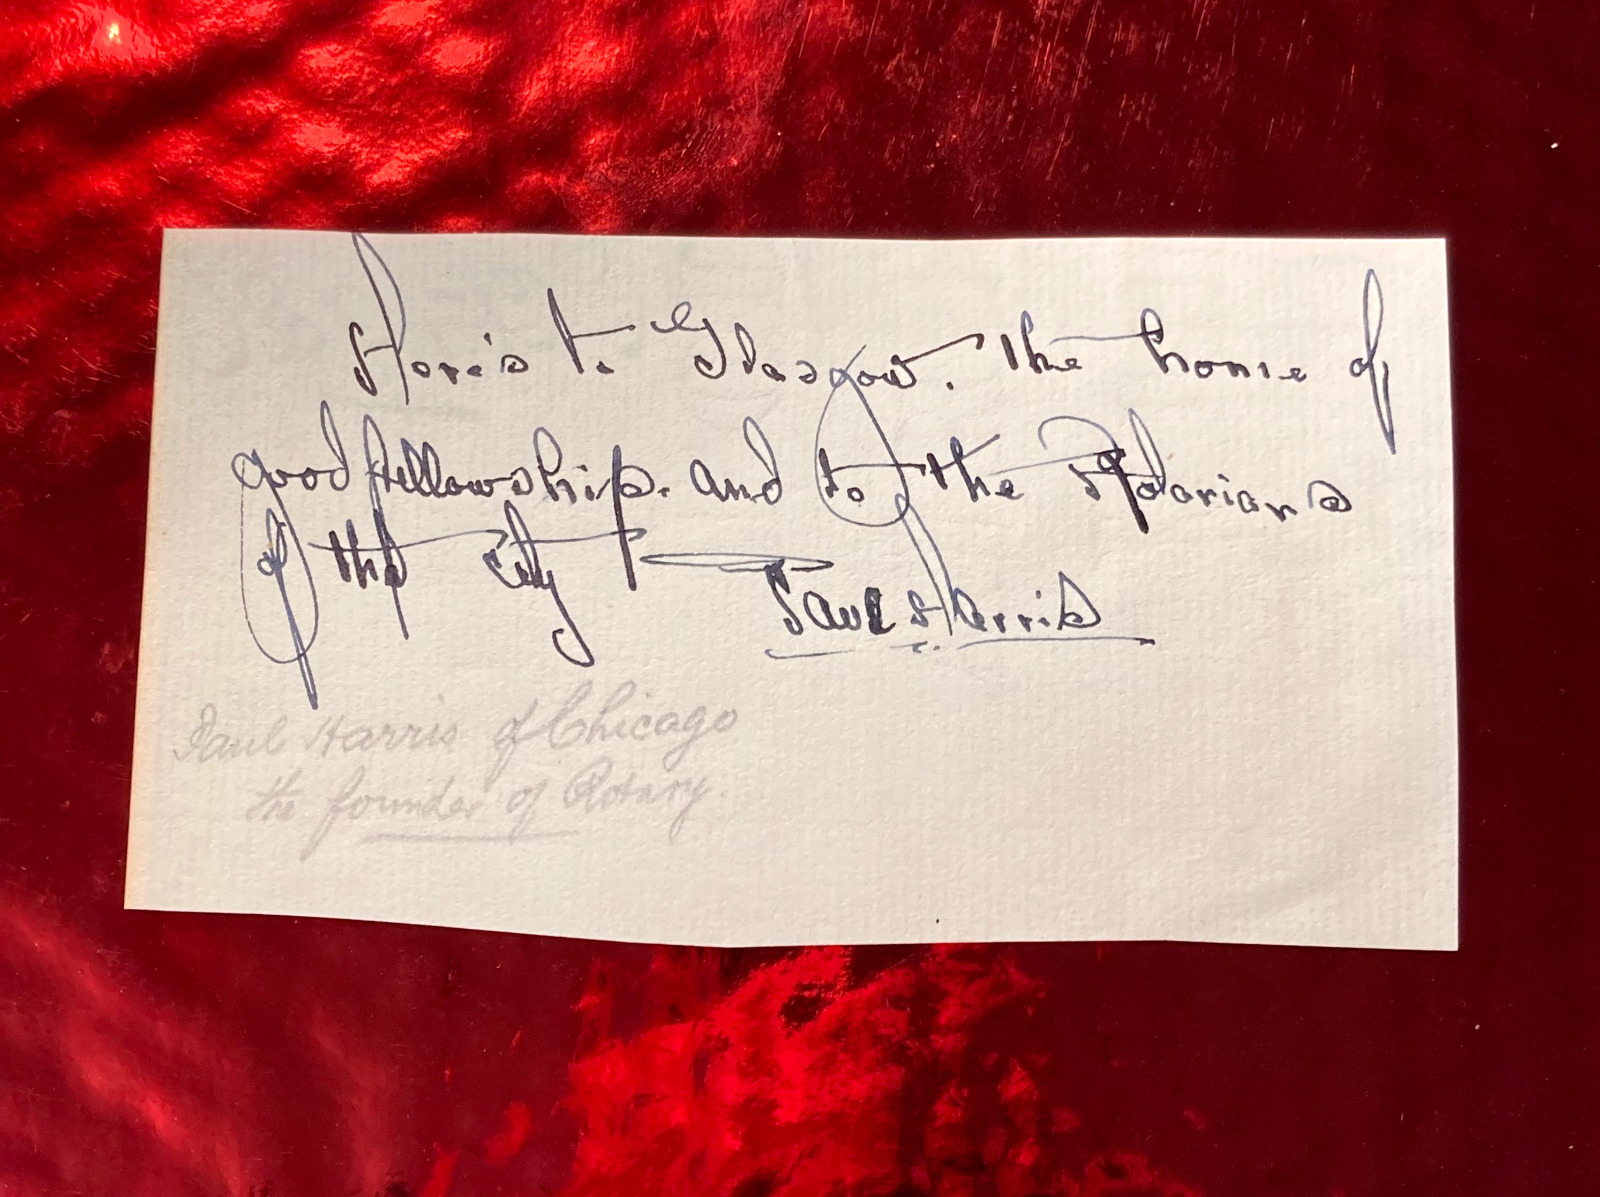 Here's to Glasgow. The home of
good fellowship. and to the Rotarians
of the city
Paul Harris
Paul Harris of Chicago
the founder of Rotary.